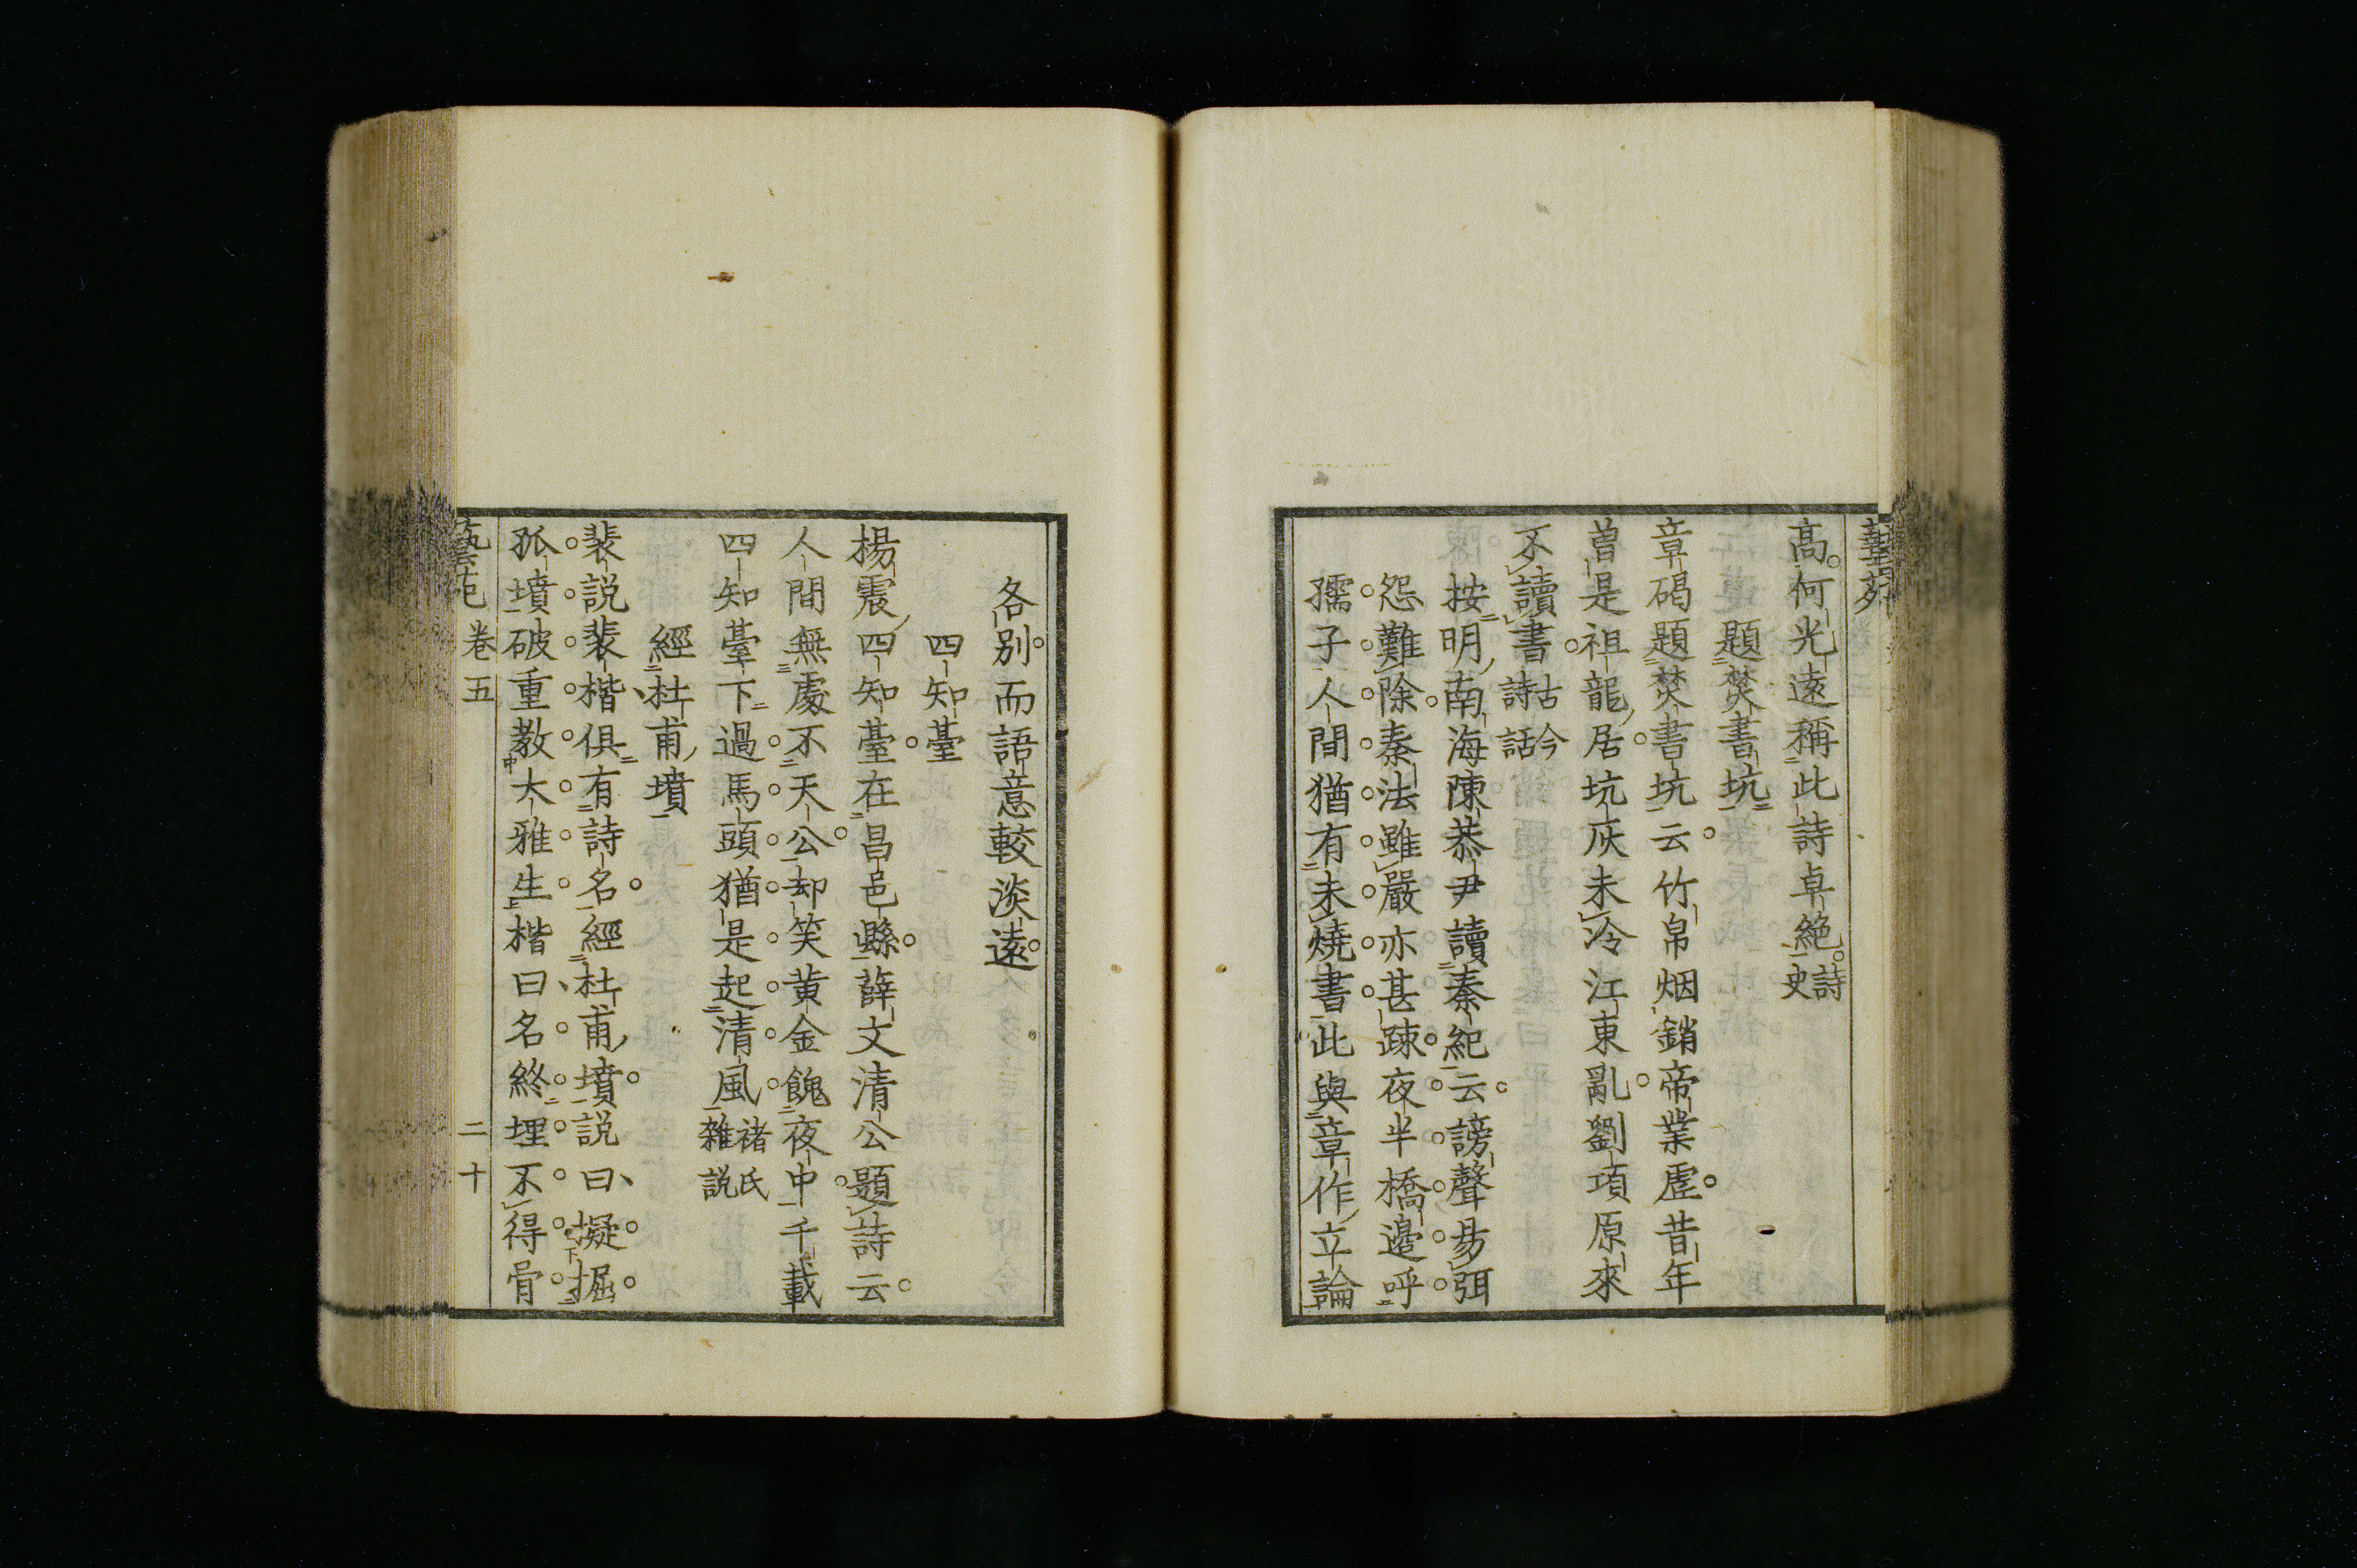 藝苑
高何光遠稱此詩卓絶詩史
題焚書坑
章碣題焚書坑云竹帛烟銷帝業虛昔年
曽是祖龍居坑灰未冷江東亂劉項原來
不讀書古今詩話
按明南海陳恭尹讀秦紀云謗聲易弭
怨難除秦法雖嚴亦甚踈夜半橋邉呼
孺子人間猶有未燒書此與章作立論
各别而語意較淡遠
四知臺
楊震四知臺在昌邑縣薛文清公題詩云
人間無處不天公却笑黄金餽夜中千載
四知臺下過馬頭猶是起清風褚氏雜説
經杜甫墳
裴説裴楷俱有詩名經杜甫墳説曰擬掘
孤墳破重教大雅生楷曰名終埋不得骨
藝苑 卷五 二十